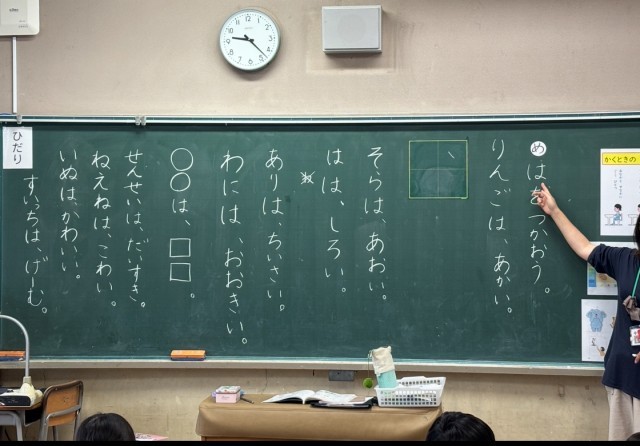 かくときの
め はをつかおう。
りんごは、あかい。
、
そらは、あおい。
はは、しろい。
ありは、ちいさい。
わには、おおきい。
○○は、□□。
せんせいは、だいすき。
ねえねは、こわい。
いぬは、かわいい。
すいっちは、げーむ。
ひだり